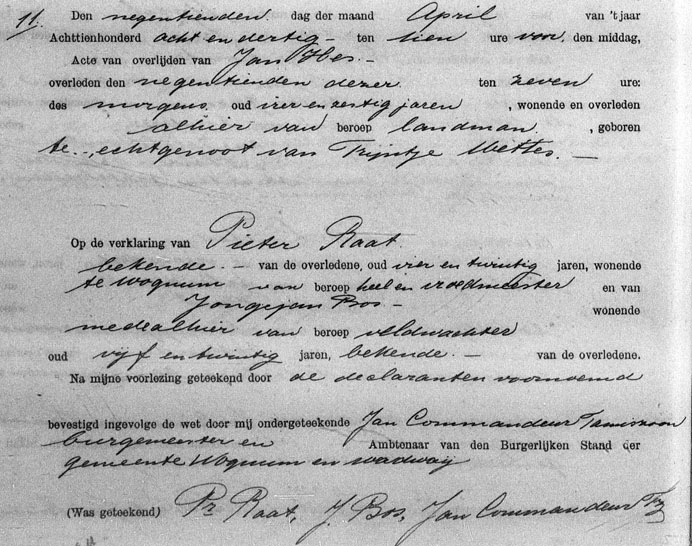 11. Den negentienden dag der maand April van 't jaar
Achttienhonderd acht en dertig – ten tien ure voor den middag,
Acte van overlijden van Jan Hes. –
overleden den negentienden dezer ten zeven ure:
des morgens oud vier en zestig jaren, wonende en overleden
alhier van beroep landman, geboren
te –, echtgenoot van Trijntje Mettes. –
Op de verklaring van Pieter Raat
bekende. – van de overledene, oud vier en twintig jaren, wonende
te Wognum van beroep heel en vroedmeester en van
Jongejan Bos – wonende
mede alhier van beroep veldwachter
oud vijf en twintig jaren, bekende. – van de overledene.
Na mijne voorlezing geteekend door de declaranten voornoemd
bevestigd ingevolge de wet door mij ondergeteekende Jan Commandeur Tamiszoon
burgemeester en Ambtenaar van den Burgerlijken Stand der
gemeente Wognum en Wadway
(Was geteekend) Pr Raat, J. Bos, Jan Commandeur Tz